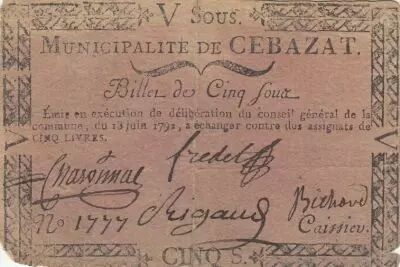 V Sous.
MUNICIPALITE DE CEBAZAT.
Billet de Cinq Sous
Emis en exécution de délibération du conseil général de la
commune, du 13 juin 1792, a échanger contre des assignats de
CINQ LIVRES.
Fredet
Charonnat
No 1777 Rigaud Richard
Caissier
CINQ S.
V
V